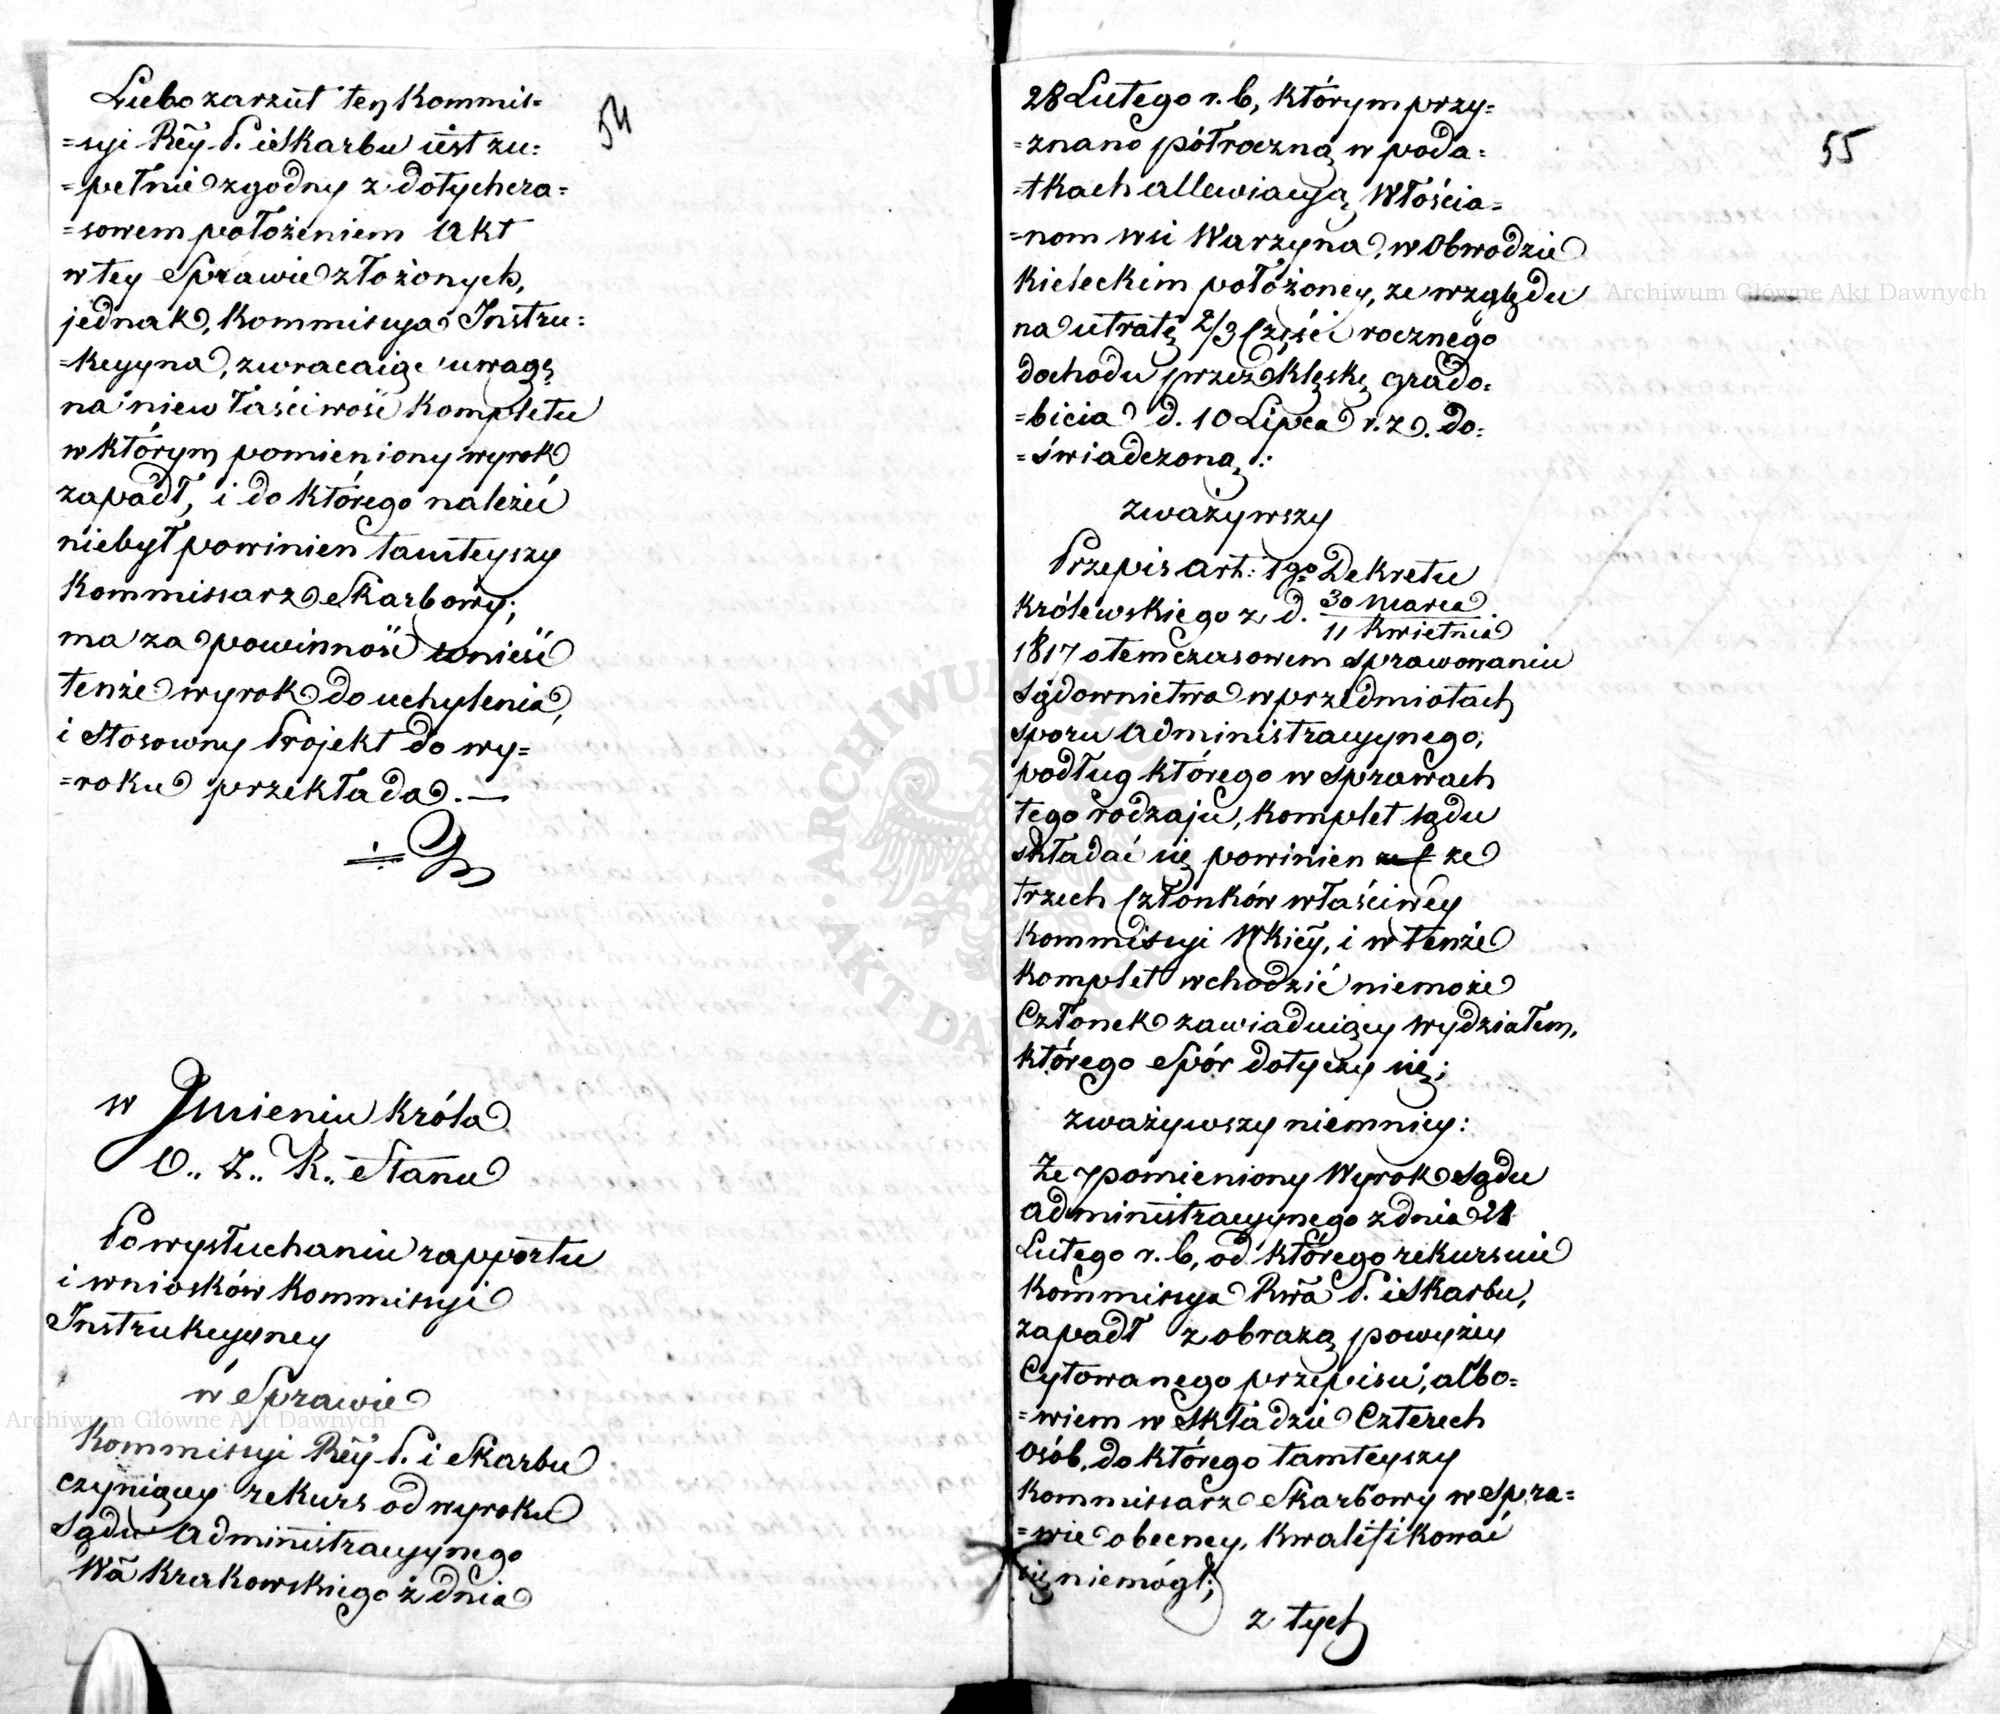 54
Lubo zarzut tey Kommis=
=syi Rey P. i Skarbu iest zu=
=pełnie zgodny z dotychcza=
=sowem położeniem Akt
w tey Sprawie złożonych,
jednak, Kommissya Instru=
=kcyyna, zwracaiąc uwagę
na niewłaściwość Kompletu
w którym pomieniony wyrok
zapadł, i do którego należeć
niebył powinien tamteyszy
Kommissarz Skarbowy;
ma za powinność wnieść
tenże wyrok do uchylenia,
i stosowny Projekt do wy=
=roku przekłada. —
w Jmieniu Króla
O.. Z.. R.. Stanu
Po wysłuchaniu rapportu
i wniosków Kommissyi
Instrukcyyney
w Sprawie
Kommissyi Rey P. i Skarbu
czyniącey rekurs od wyroku
Sądu Administracyynego
Wa Krakowskiego z dnia
55
28 Lutego r. b, którym przy=
=znano półroczną w poda=
=tkach allewiacyą Włościa=
=nom wsi Warzyna, w Obwodzie
Kieleckim położoney, ze względu
na utratę 2/3 Części rocznego
dochodu przez klęskę grado=
=bicia d. 10 Lipca r. z. do=
=świadczoną:
zważywszy
Przepis art: 1go Dekretu
Królewskiego z d. 30 Marca / 11 Kwietnia
1817 o temczasowem sprawowaniu
Sądownictwa w przedmiotach
sporu Administracyynego,
podług którego w sprawach
tego rodzaju, Komplet sądu
składać się powinien ze
trzech Członków właściwey
Kommissyi Wkiey, i w tenże
Komplet wchodzić niemoże
Członek zawiaduiący wydziałem,
którego Spór dotyczy się;
zważywszy niemniey:
Że pomieniony Wyrok Sądu
Administracyynego z dnia 28
Lutego r. b, od którego rekursuie
Kommissya Rwa P. i Skarbu,
zapadł z obrazą powyżey
Cytowanego przepisu, albo=
=wiem w Składzie Czterech
osób, do którego tamteyszy
Kommissarz Skarbowy w Spra=
=wie obecney, kwalifikować
się niemógł;
z tych
ARCHIWUM GŁÓWNE AKT DAWNYCH
Archiwum Główne Akt Dawnych
Archiwum Główne Akt Dawnych